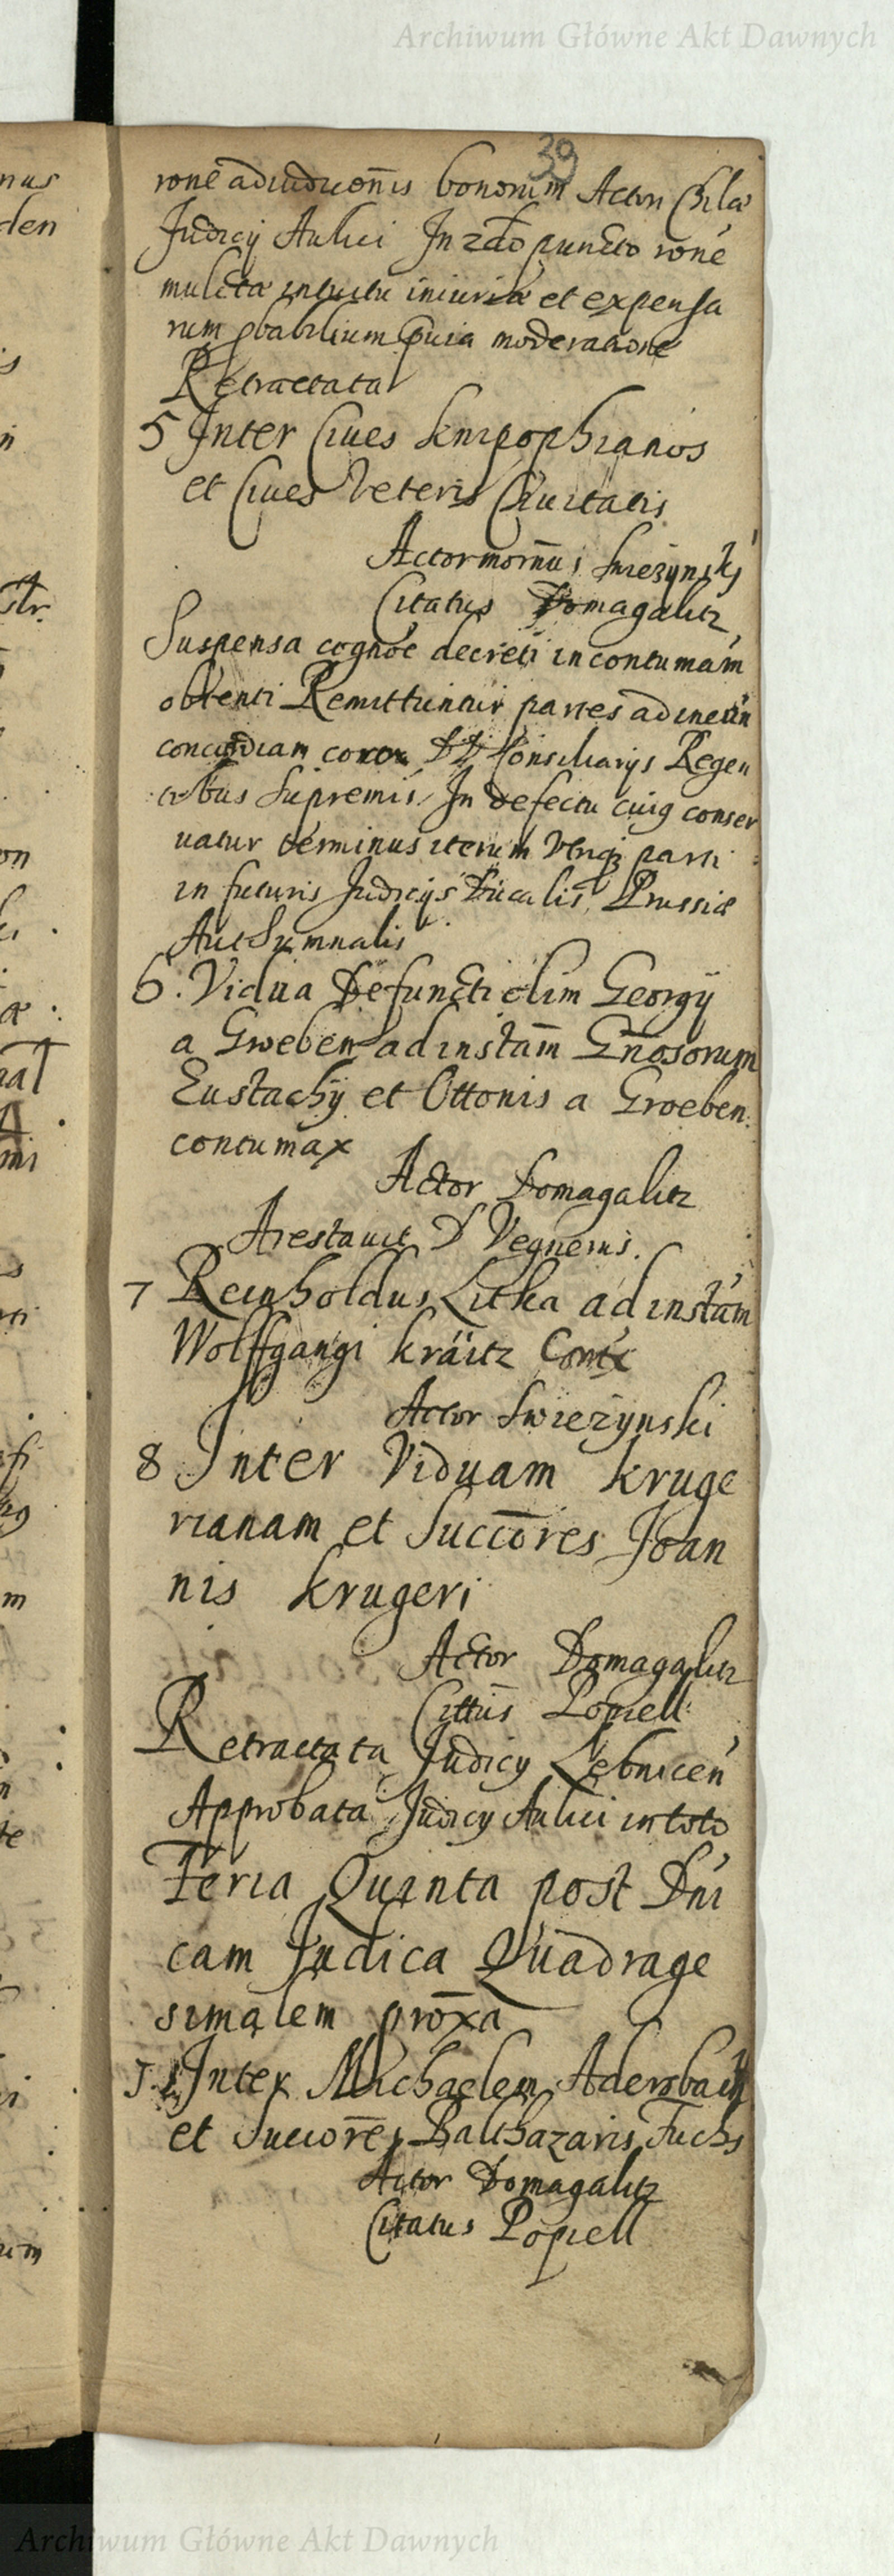 Archiwum Główne Akt Dawnych
39
rone adiudicōnis bonorum Actori
Judicij Aulici In 2do puncto rone
mulcta intuitu iniuriæ et expensa
rum moderatione
Retractata
5 Inter Ciues knipophianos
et Ciues Veteris Ciuitatis
Actor Swiezynski
Citatus Domagalitz
Suspensa cognōe decreti in contumam
obtenti Remittuntur partes ad ineun
concordiam coram DD Consiliarijs Regen
tibus Supremis In defectu cuig conser
uatur terminus iterum vtriq; parti
in futuris Judicijs Ducalis Prussiæ
Authumnalis
6. Vidua Defuncti olim Georgij
a Groeben ad instam̄ Gn̄osorum
Eustachij et Ottonis a Groeben
contumax
Actor Domagalitz
Arestauit D Vegnerus.
7 Reinholdus Litka ad instam
Wolffgangi kräitz Contx
Actor Swiezynski
8 Inter Viduam kruge
rianam et Succōres Joan
nis krugeri
Actor Domagalitz
Cittūs Popiell
Retractata Judicy Lebnicen
Approbata Judicy Aulici in toto
Feria Quinta post Dni
cam Judica Quadrage
simalem prōxa
1 Inter Michaelem Adersbach
et Succorēs Balthazaris Fuchs
Actor Domagalitz
Citatus Popiell
Archiwum Główne Akt Dawnych